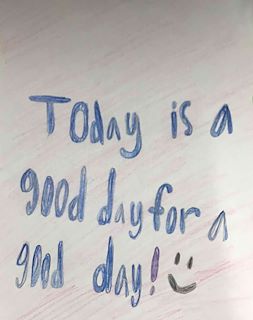 Today is a
good day for a
good day!